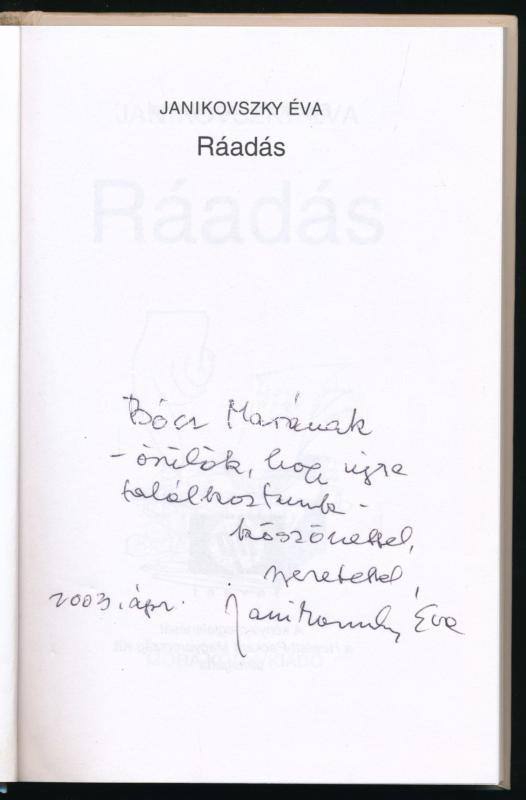 JANIKOVSZKY ÉVA
Ráadás
Bócz Máriának
- örülök, hogy újra
találkoztunk -
köszönettel,
szeretettel,
2003. ápr. Janikovszky Éva